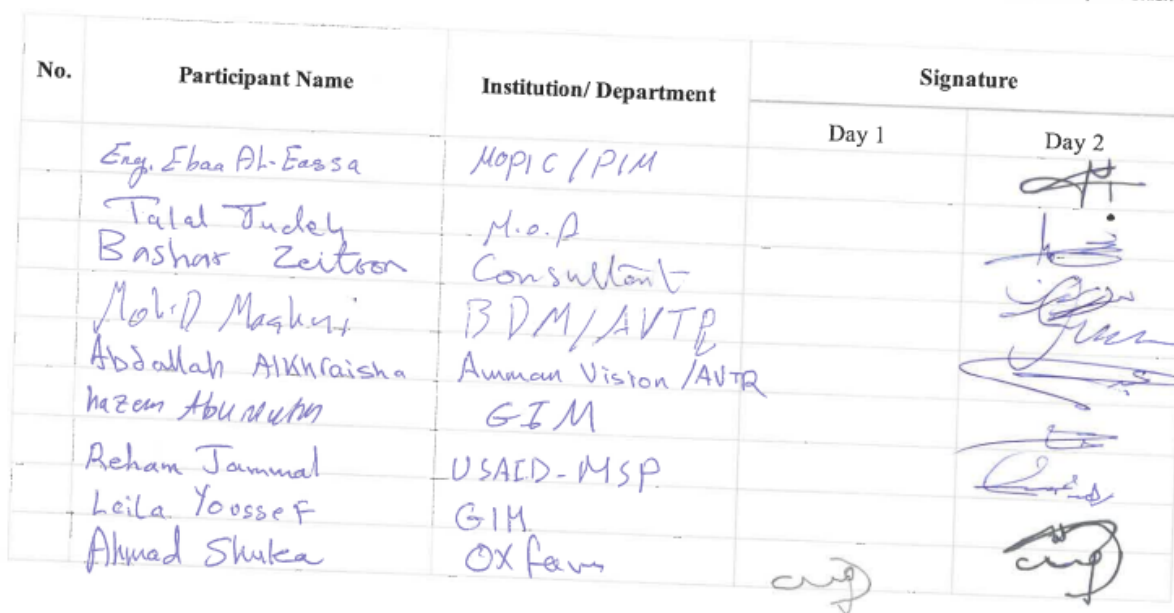 No. Participant Name Institution/ Department Signature
Day 1 Day 2
Eng. Ebaa Al-Eassa MOPIC/PIM
Talal Judeh M.o.A
Bashar Zeitoon Consultant
BDM/AVTR
Abdallah AlKhraisha Amman Vision/AVTR
hazem GIM
Reham Jammal USAID-MSP
Leila Youssef GIM
Ahmad Shuka OXfam